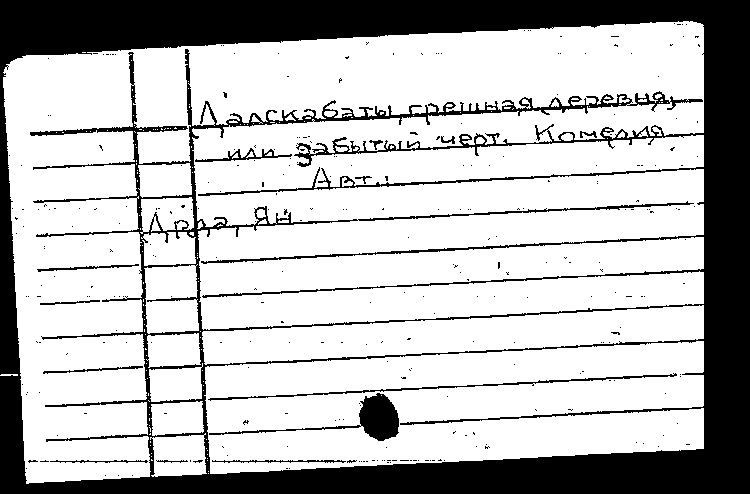 Далскабаты, грешная деревня,
или забытый черт. Комедия
Авт.:
Дрда, Ян